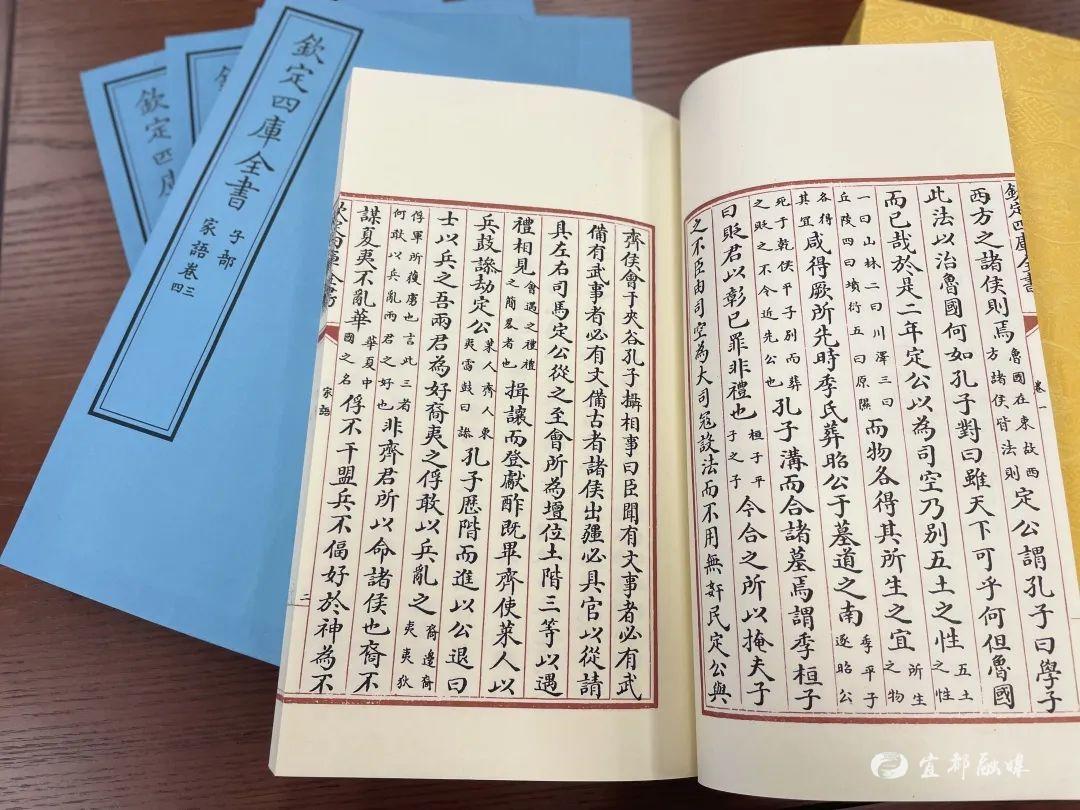 欽定四庫全書
子部
家語卷三四
欽定四庫
欽定四庫全書
卷一
西方之諸侯則焉魯國在東故西方諸侯皆法則定公謂孔子曰學子
此法以治魯國何如孔子對曰雖天下可乎何但魯國
而已哉於是二年定公以為司空乃別五土之性五土之性
一曰山林二曰川澤三曰丘陵四曰墳衍五曰原隰而物各得其所生之宜所生之物
各得其宜咸得厥所先時季氏葬昭公于墓道之南季平子逐昭公
死于乾侯平子別而葬之貶之不令近先公也孔子溝而合諸墓焉謂季桓子
曰貶君以彰已罪非禮也桓子平子之子今合之所以掩夫子
之不臣由司空為大司寇設法而不用無奸民定公與
齊侯會于夾谷孔子攝相事曰臣聞有文事者必有武
備有武事者必有文備古者諸侯出疆必具官以從請
具左右司馬定公從之至會所為壇位土階三等以遇
禮相見會遇之禮禮之簡畧者也揖讓而登獻酢既畢齊使萊人以
兵鼓謲劫定公萊人齊人東夷雷鼓曰謲孔子歷階而進以公退曰
士以兵之吾兩君為好裔夷之俘敢以兵亂之裔邊裔夷夷狄
俘軍所獲虜也言此三者何敢以兵亂兩君之好也非齊君所以命諸侯也裔不
謀夏夷不亂華華夏中國之名俘不干盟兵不偪好於神為不
家語
二
宜都融媒